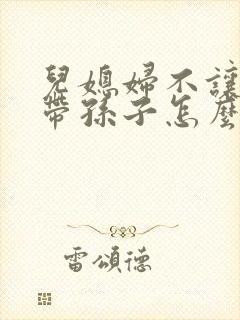 兒媳婦不讓
帶孫子怎麼
雷頌德